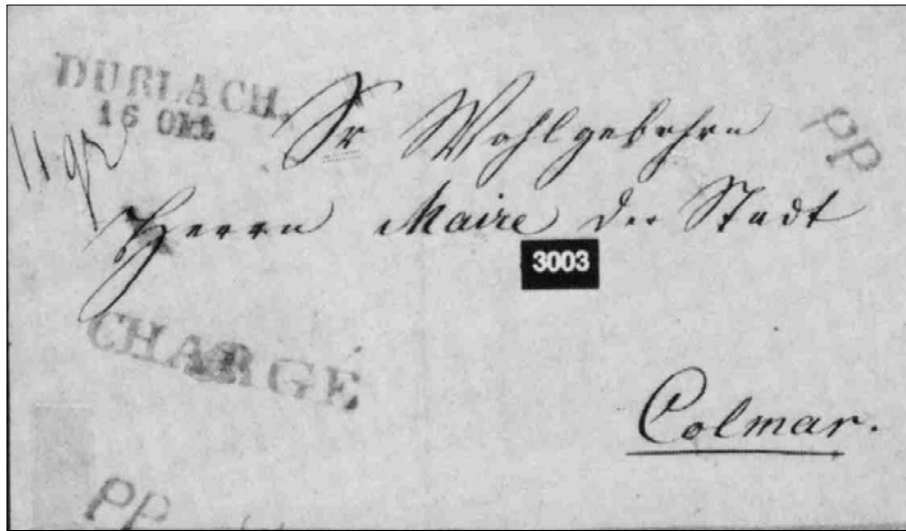 DURLACH.
16 Okt
PP
Sr Wohlgebohrn
Herrn Maire der Stadt
3003
CHARGÉ
Colmar.
PP